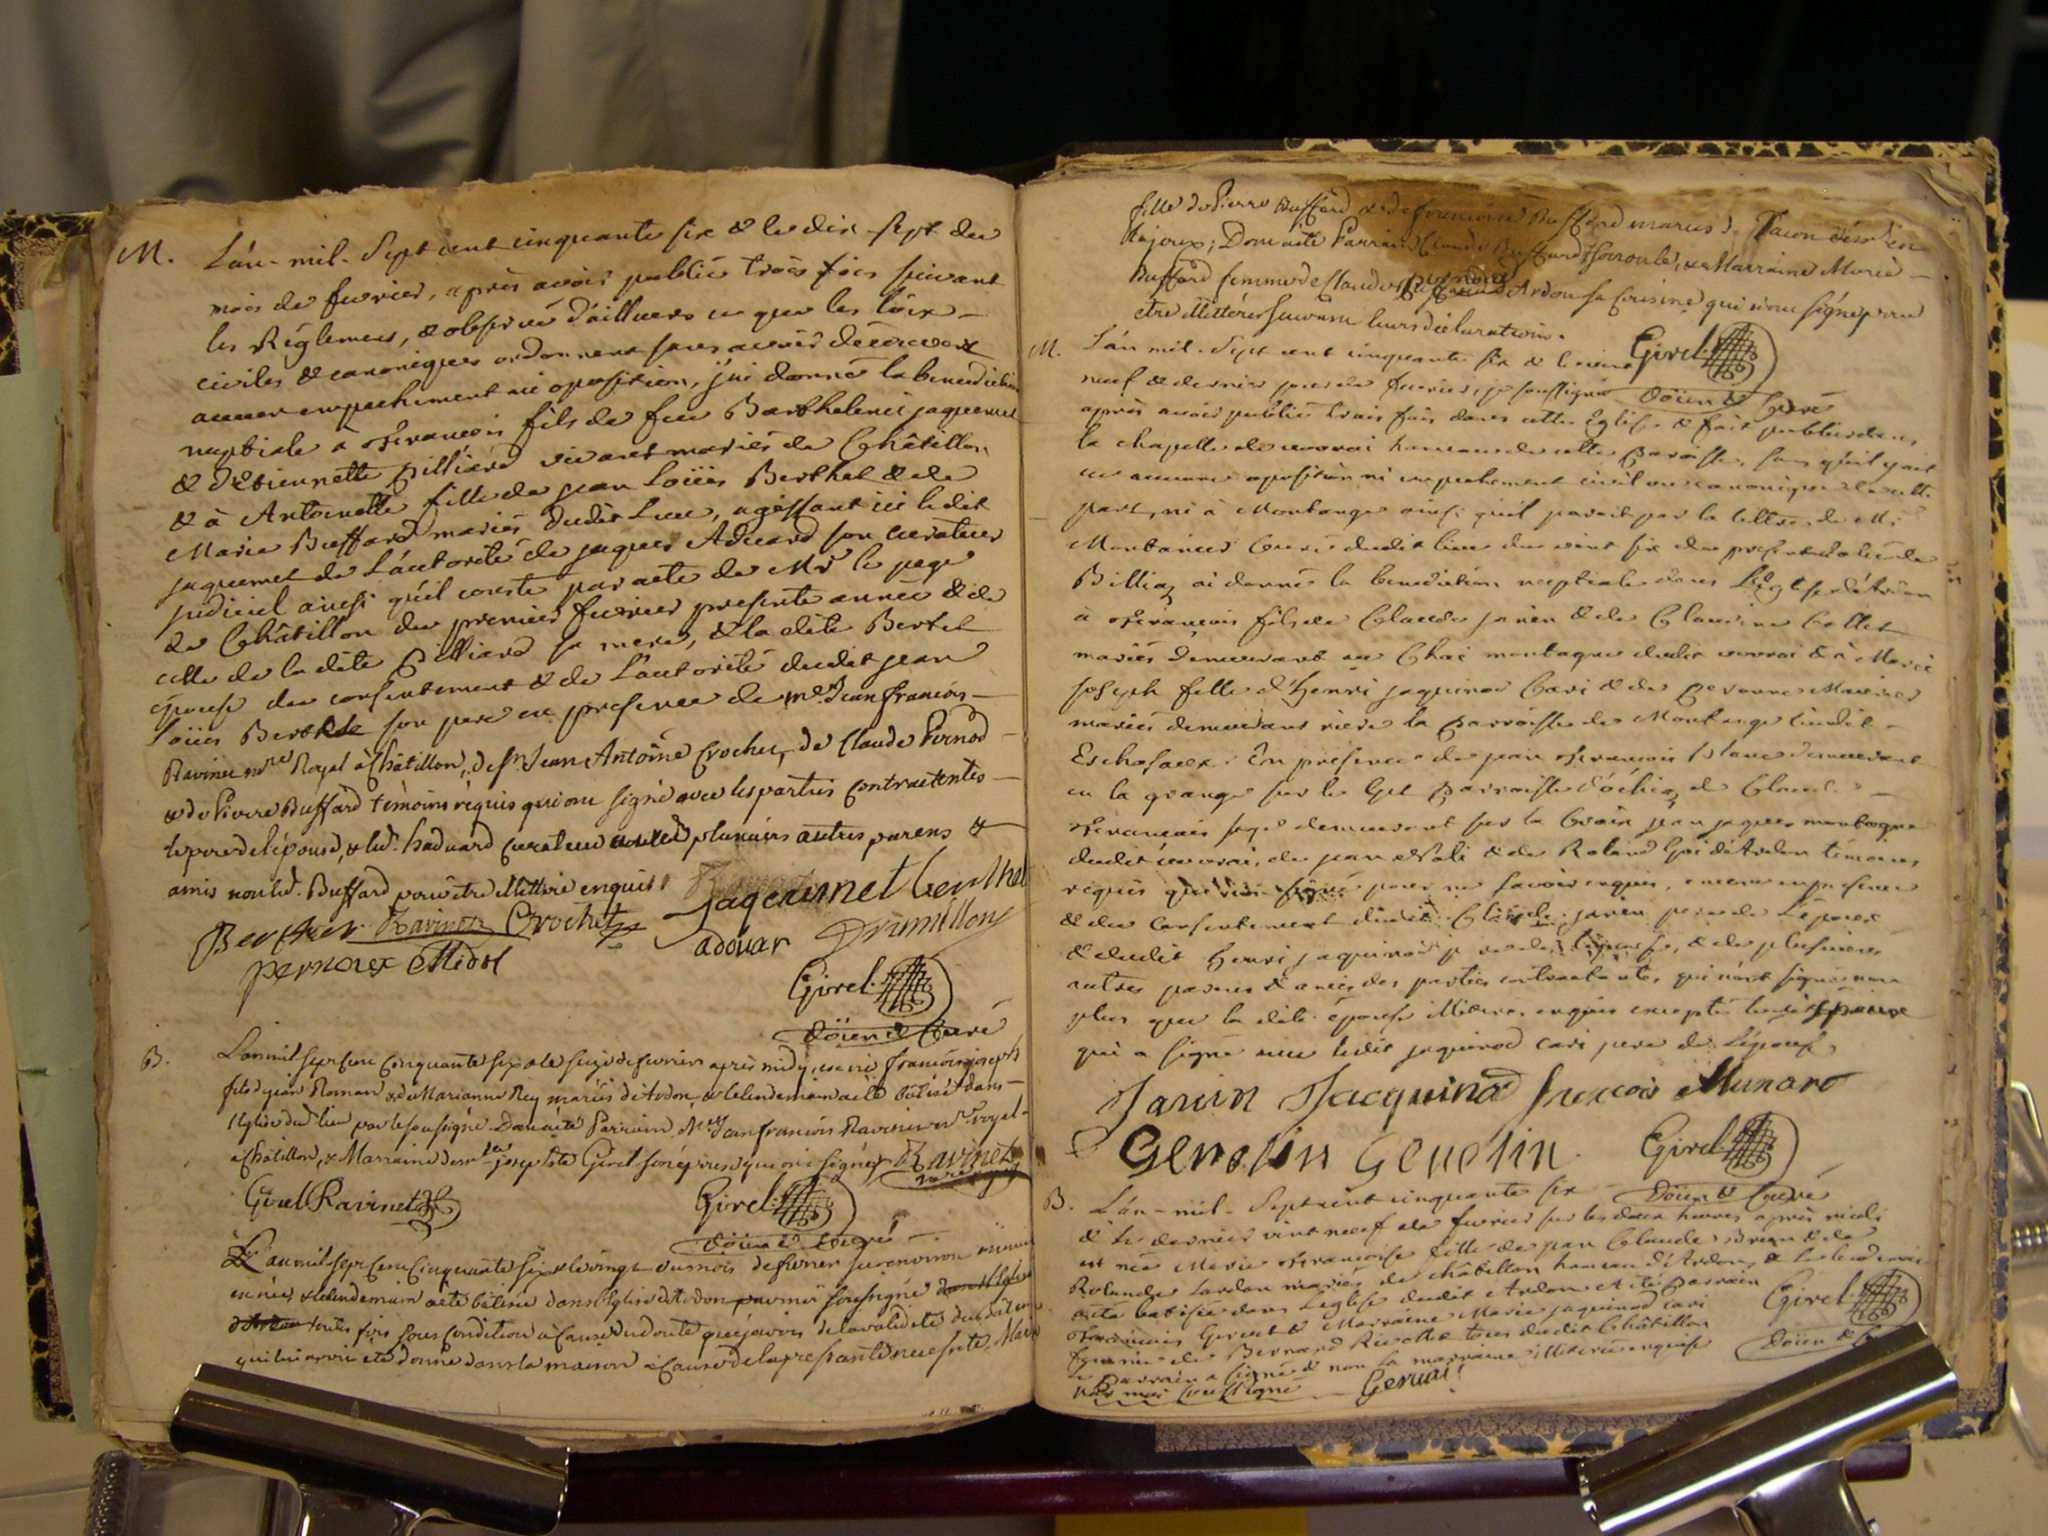 M. L'án-mil-Sept cent cinquante six & le dix-sept du
mois de fevrier, après avoir publié trois fois suivant
les Réglemens, & observé d'ailleurs ce que les loix
civiles & canoniques ordonnent sans avoir découvert
aucun empechement ni oposition, j'ai donné la benediction
nuptiale à françois fils de feu Barthelemi jaquemet
& d'Etiennette Billiard vivant mariés de Châtillon
& à Antoinette fille de jean Loüis Berthet & de
Marie Buffard mariés dudit Lieu, agissant ici ledit
jaquemet de L'autorité de jaques Aduard son curateur
judiciel ainsi qu'il conste par acte de Mr le juge
de Châtillon du premier fevrier presente année & de
celle de la dite Billiard sa mere, & la dite Bertet
épouse du consentement & de L'autorité dudit jean
Loüis Bertet son pere en presence de me Jean françois
Ravinet nre Royal à Châtillon, de sr Jean Antoine Crochet, de Claude Pernod
& de Pierre Buffard temoins réquis qui ont signé avec les parties contractentes
le pere de l'épouse, & led. haduard curateur plusieurs autres parens &
amis non led. Buffard pour être illittéré enquis
Jaquemet Berthet
Berthet Ravinet Crochet
adouar Drumillion
pernoux Midol
Girel
döien & Curé
B. L'an mil sept cent Cinquante six & le seize de fevrier après midy, est né françois joseph
fils de jean Roman & de Marianne Rey mariés d'Ardon, & le lendemain a été bâtisé dans
l'église dud. lieu par le soussigné. Dont a été Parrain Me Jean françois Ravinet nre royal
à Châtillon, & Marraine demlle josephte Girel son épouse qui ont signés Ravinet
Girel Ravinet Girel
döien & curé
L'an mil sept cent Cinquante six & le vingt du mois de fevrier sur environ minuit
est née, & le lendemain a été bâtisée dans l'Eglise d'Ardon par moi soussigné dans l'Eglise
d'Ardon toutes fois sous condition à cause du doute que j'avois de la validité du
qui lui avoit été donné dans la maison à cause de la pressante necessité, Marie
fille de Pierre Buffard & de françoise Buffard mariés
Dont a été Parrain Claude Buffard & Marraine Marie
Buffard femme de Claude d'Ardon sa Cousine qui n'ont signé pour
etre illittérés suivant leurs déclarations.
Girel
döien & Curé
M. L'án mil-Sept cent cinquante six & le vint
neuf & dernier jour de fevrier, je soussigné
après avoir publié trois fois dans cette Eglise & fait publier dans
la chapelle de vouvrai hameau de cette Paroisse, sans qu'il y ait
eu aucune oposition ni empechement civil ou canonique de cette
part, ni à Montange ainsi qu'il paroit par la lettre de Mr
Montanier Curé dudit lieu du vint six du present
Billiaz ai donné la benediction nuptiale dans L'église d'Ardon
à françois fils de Claude jarin & de Claudine Collet
mariés demeurant au Chai montagne dudit vouvrai & à Marie
joseph fille d'Henri jaquinod Cari & de Pernonne Marinet
mariés demeurans riere la Parroisse de Montange lieudit
Eschafaux: En presence de jean françois Blanc demeurant
en la grange sur le Gel Parroisse d'óchiaz de Claude
françois juge demeurant sur la Craie jean jaques montagne
dudit vouvrai, de jean & de Roland Gai d'Ardon témoins
réquis qui n'ont signé pour ne savoir enquis, encore en presence
& du consentement dudit Claude jarin pere de L'époux
& dudit henri jaquinod pere de L'épouse, & de plusieurs
autres parens & amis des parties contractantes, qui n'ont signé non
plus que la dite épouse illiterée enquis excepté ledit époux
qui a signé avec ledit jaquinod cari pere de L'épouse
Jarin Jacquinod francois Munaro
Genolin Genolin Girel
döien & Curé
B. L'án-mil-Sept cent cinquante six
& le dernier vint neuf de fevrier sur les deux heures après midi
est née Marie françoise fille de jean Claude Brun & de
Rolande Lardon mariés de Châtillon hameau d'Ardon, & le lendemain
a été batisée dans L'eglise dudit Ardon. A été Parrain
françois Gervat & Marraine Marie jaquinod Cari
femme de Bernard tous dudit Châtillon
le Parrain a signé & non la marraine illiterée enquise
par moi soussigné Gervai
Girel
döien &